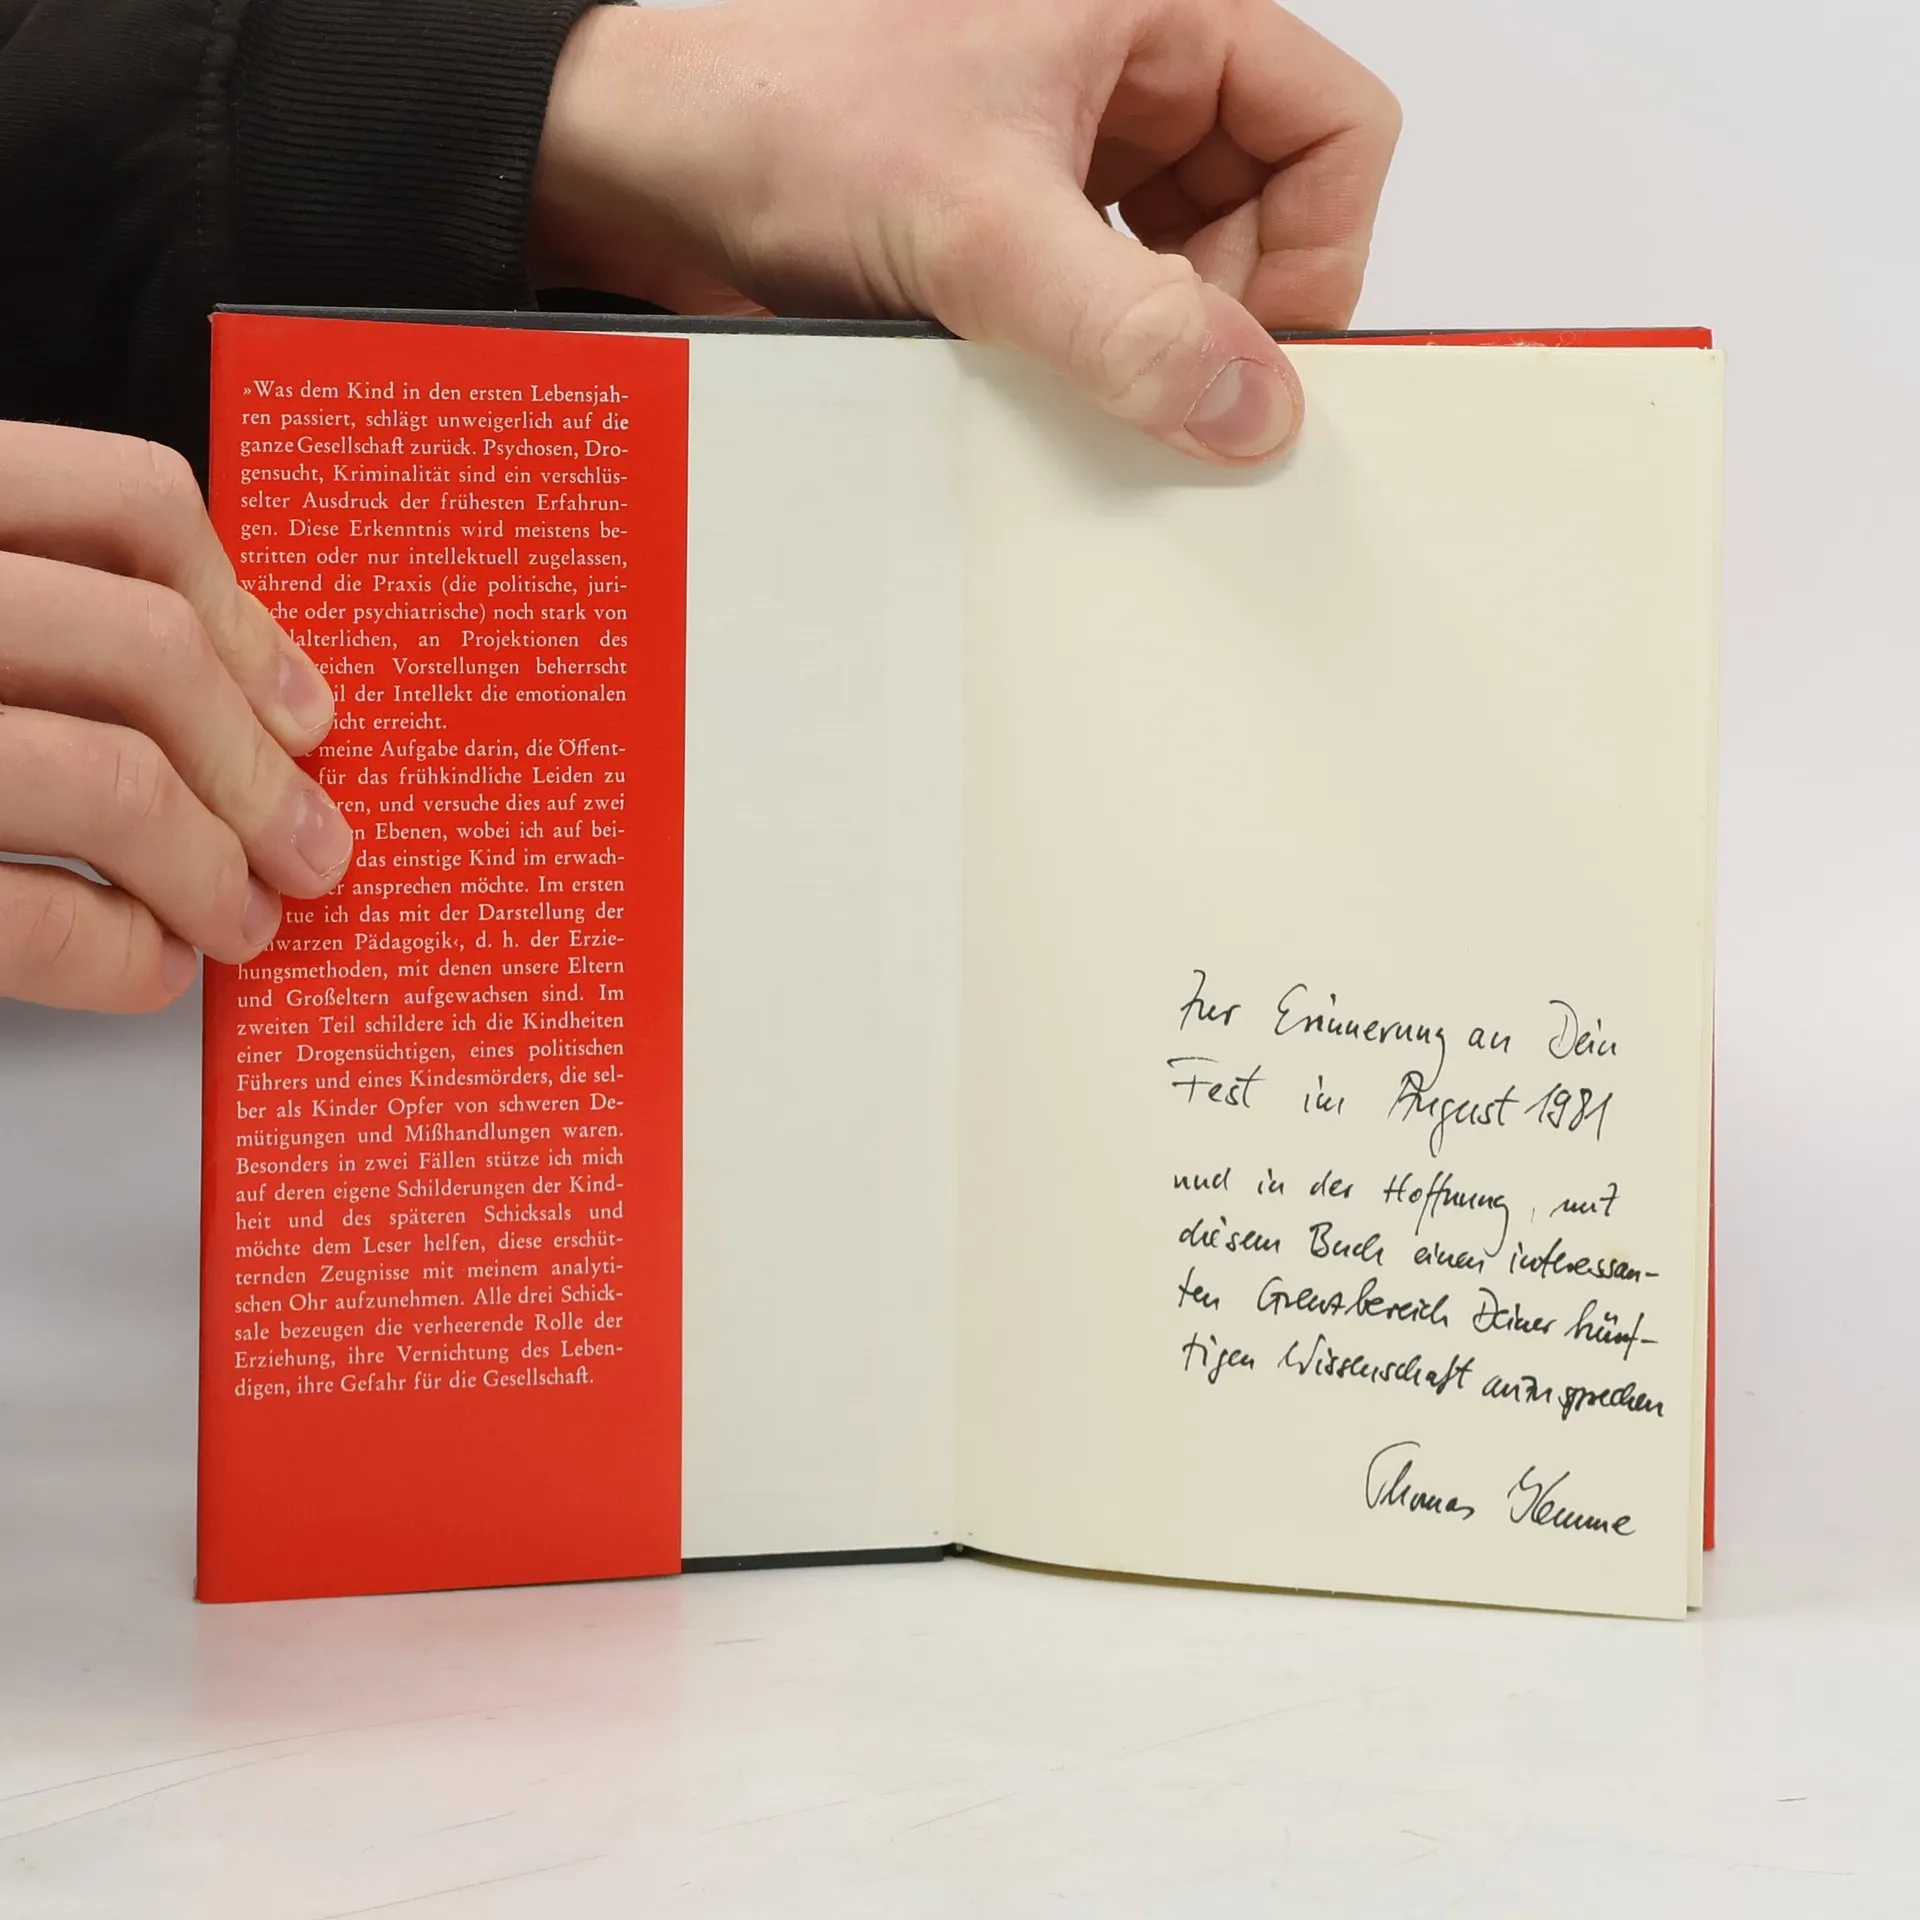 »Was dem Kind in den ersten Lebensjah-
ren passiert, schlägt unweigerlich auf die
ganze Gesellschaft zurück. Psychosen, Dro-
gensucht, Kriminalität sind ein verschlüs-
selter Ausdruck der frühesten Erfahrun-
gen. Diese Erkenntnis wird meistens be-
stritten oder nur intellektuell zugelassen,
während die Praxis (die politische, juri-
sche oder psychiatrische) noch stark von
lalterlichen, an Projektionen des
reichen Vorstellungen beherrscht
il der Intellekt die emotionalen
icht erreicht.
meine Aufgabe darin, die Öffent-
für das frühkindliche Leiden zu
ren, und versuche dies auf zwei
n Ebenen, wobei ich auf bei-
das einstige Kind im erwach-
er ansprechen möchte. Im ersten
tue ich das mit der Darstellung der
hwarzen Pädagogik‹, d. h. der Erzie-
hungsmethoden, mit denen unsere Eltern
und Großeltern aufgewachsen sind. Im
zweiten Teil schildere ich die Kindheiten
einer Drogensüchtigen, eines politischen
Führers und eines Kindesmörders, die sel-
ber als Kinder Opfer von schweren De-
mütigungen und Mißhandlungen waren.
Besonders in zwei Fällen stütze ich mich
auf deren eigene Schilderungen der Kind-
heit und des späteren Schicksals und
möchte dem Leser helfen, diese erschüt-
ternden Zeugnisse mit meinem analyti-
schen Ohr aufzunehmen. Alle drei Schick-
sale bezeugen die verheerende Rolle der
Erziehung, ihre Vernichtung des Leben-
digen, ihre Gefahr für die Gesellschaft.
Zur Erinnerung an Dein
Fest im August 1981
und in der Hoffnung, mit
diesem Buch einen interessan-
ten Grenzbereich Deiner künf-
tigen Wissenschaft anzusprechen
Thomas Klemme